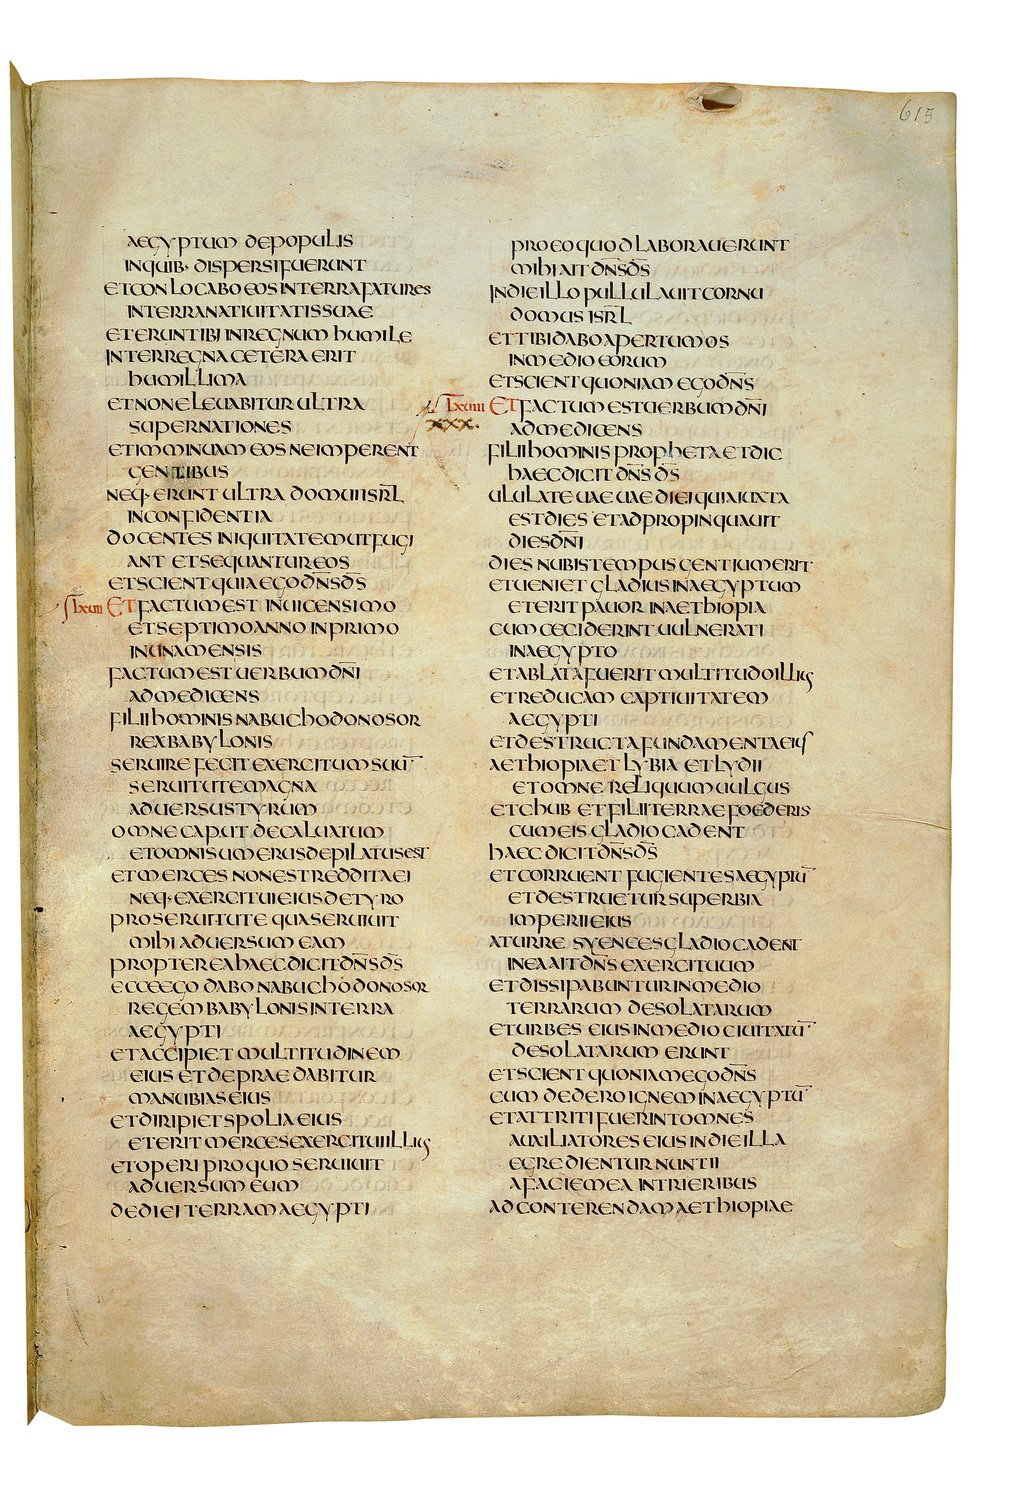 615
AEGYPTUM DEPOPULIS
INQUIB· DISPERSIFUERUNT
ETCONLOCABOEOSINTERRAFATURES
INTERRANATIUITATISSUAE
ETERUNTIBIINREGNUMHUMILE
INTERREGNACETERAERIT
HUMILLIMA
ETNONELEUABITURULTRA
SUPERNATIONES
ETIMMINUAMEOSNEIMPERENT
GENTIBUS
NEQ·ERUNTULTRADOMUIISR̅L
INCONFIDENTIA
DOCENTESINIQUITATEMUTFUGI
ANT ETSEQUANTUREOS
ETSCIENTQUIAEGODN̅SDS̅
LXVII ETFACTUMEST INUICENSIMO
ETSEPTIMOANNOINPRIMO
INUNAMENSIS
FACTUMESTUERBUMDN̅I
ADMEDICENS
FILIIHOMINISNABUCHODONOSOR
REXBABYLONIS
SERUIREFECITEXERCITUMSUU̅
SERUITUTEMAGNA
ADUERSUSTYRUM
OMNECAPUT DECALUATUM
ETOMNISUMERUSDEPILATUSEST
ETMERCES NONESTREDDITAEI
NEQ·EXERCITUIEIUSDETYRO
PROSERUITUTE QUASERUIUIT
MIHIADUERSUM EAM
PROPTEREAHAECDICITDN̅SDS̅
ECCEEGO DABONABUCHODONOSOR
REGEMBABYLONISINTERRA
AEGYPTI
ETACCIPIETMULTITUDINEM
EIUS ETDEPRAEDABITUR
MANUBIASEIUS
ETDIRIPIETSPOLIAEIUS
ETERITMERCESEXERCITUIILLIUS
ETOPERIPROQUOSERUIUIT
ADUERSUM EUM
DEDIEITERRAMAEGYPTI
PROEOQUODLABORAUERUNT
MIHIAITDN̅SDS̅
INDIEILLOPULLULAUITCORNU
DOMUS ISR̅L
ETTIBIDABOAPERTUMOS
INMEDIOEORUM
ETSCIENTQUONIAMEGODN̅S
LXVIII ETFACTUMESTUERBUMDN̅I
XXX.
ADMEDICENS
FILIIHOMINISPROPHETAETDIC
HAECDICITDN̅SDS̅
ULULATEUAEUAEDIEIQUIAIUXTA
ESTDIES ETADPROPINQUAUIT
DIESDN̅I
DIESNUBISTEMPUSGENTIUMERIT
ETUENIETGLADIUSINAEGYPTUM
ETERITPAUORINAETHIOPIA
CUMCECIDERINTUULNERATI
INAEGYPTO
ETABLATAFUERITMULTITUDOILLIUS
ETREDUCAM CAPTIUITATEM
AEGYPTI
ETDESTRUCTAFUNDAMENTAEIUS
AETHIOPIAETLYBIA ETLYDII
ETOMNERELIQUUMUULGUS
ETCHUB ETFILIITERRAEFOEDERIS
CUMEISGLADIOCADENT
HAECDICITDN̅SDS̅
ETCORRUENTFUGIENTESAEGYPTIU̅
ETDESTRUETURSUPERBIA
IMPERIIEIUS
ATURRESYENEESGLADIOCADENT
INEAAITDN̅SEXERCITUUM
ETDISSIPABUNTURINMEDIO
TERRARUM DESOLATARUM
ETURBES EIUSINMEDIOCIUITATU̅
DESOLATARUM ERUNT
ETSCIENTQUONIAMEGODN̅S
CUM DEDEROIGNEMINAEGYPTU̅
ETATTRITIFUERINTOMNES
AUXILIATORESEIUSINDIEILLA
EGREDIENTURNUNTII
AFACIEMEAINTRIERIBUS
ADCONTERENDAMAETHIOPIAE